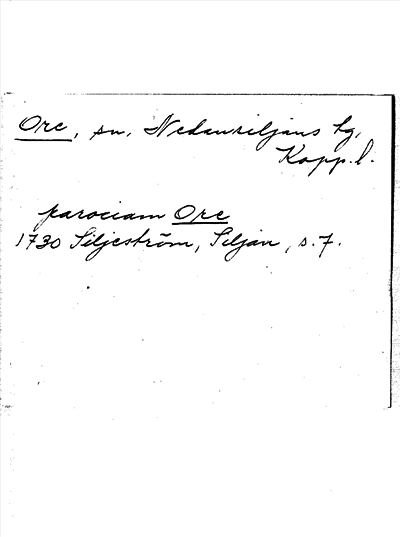 Ore, sn, Nedansiljans hg,
Kopp. l.
parociam Ore
1730 Siljeström, Siljan, s. 7.